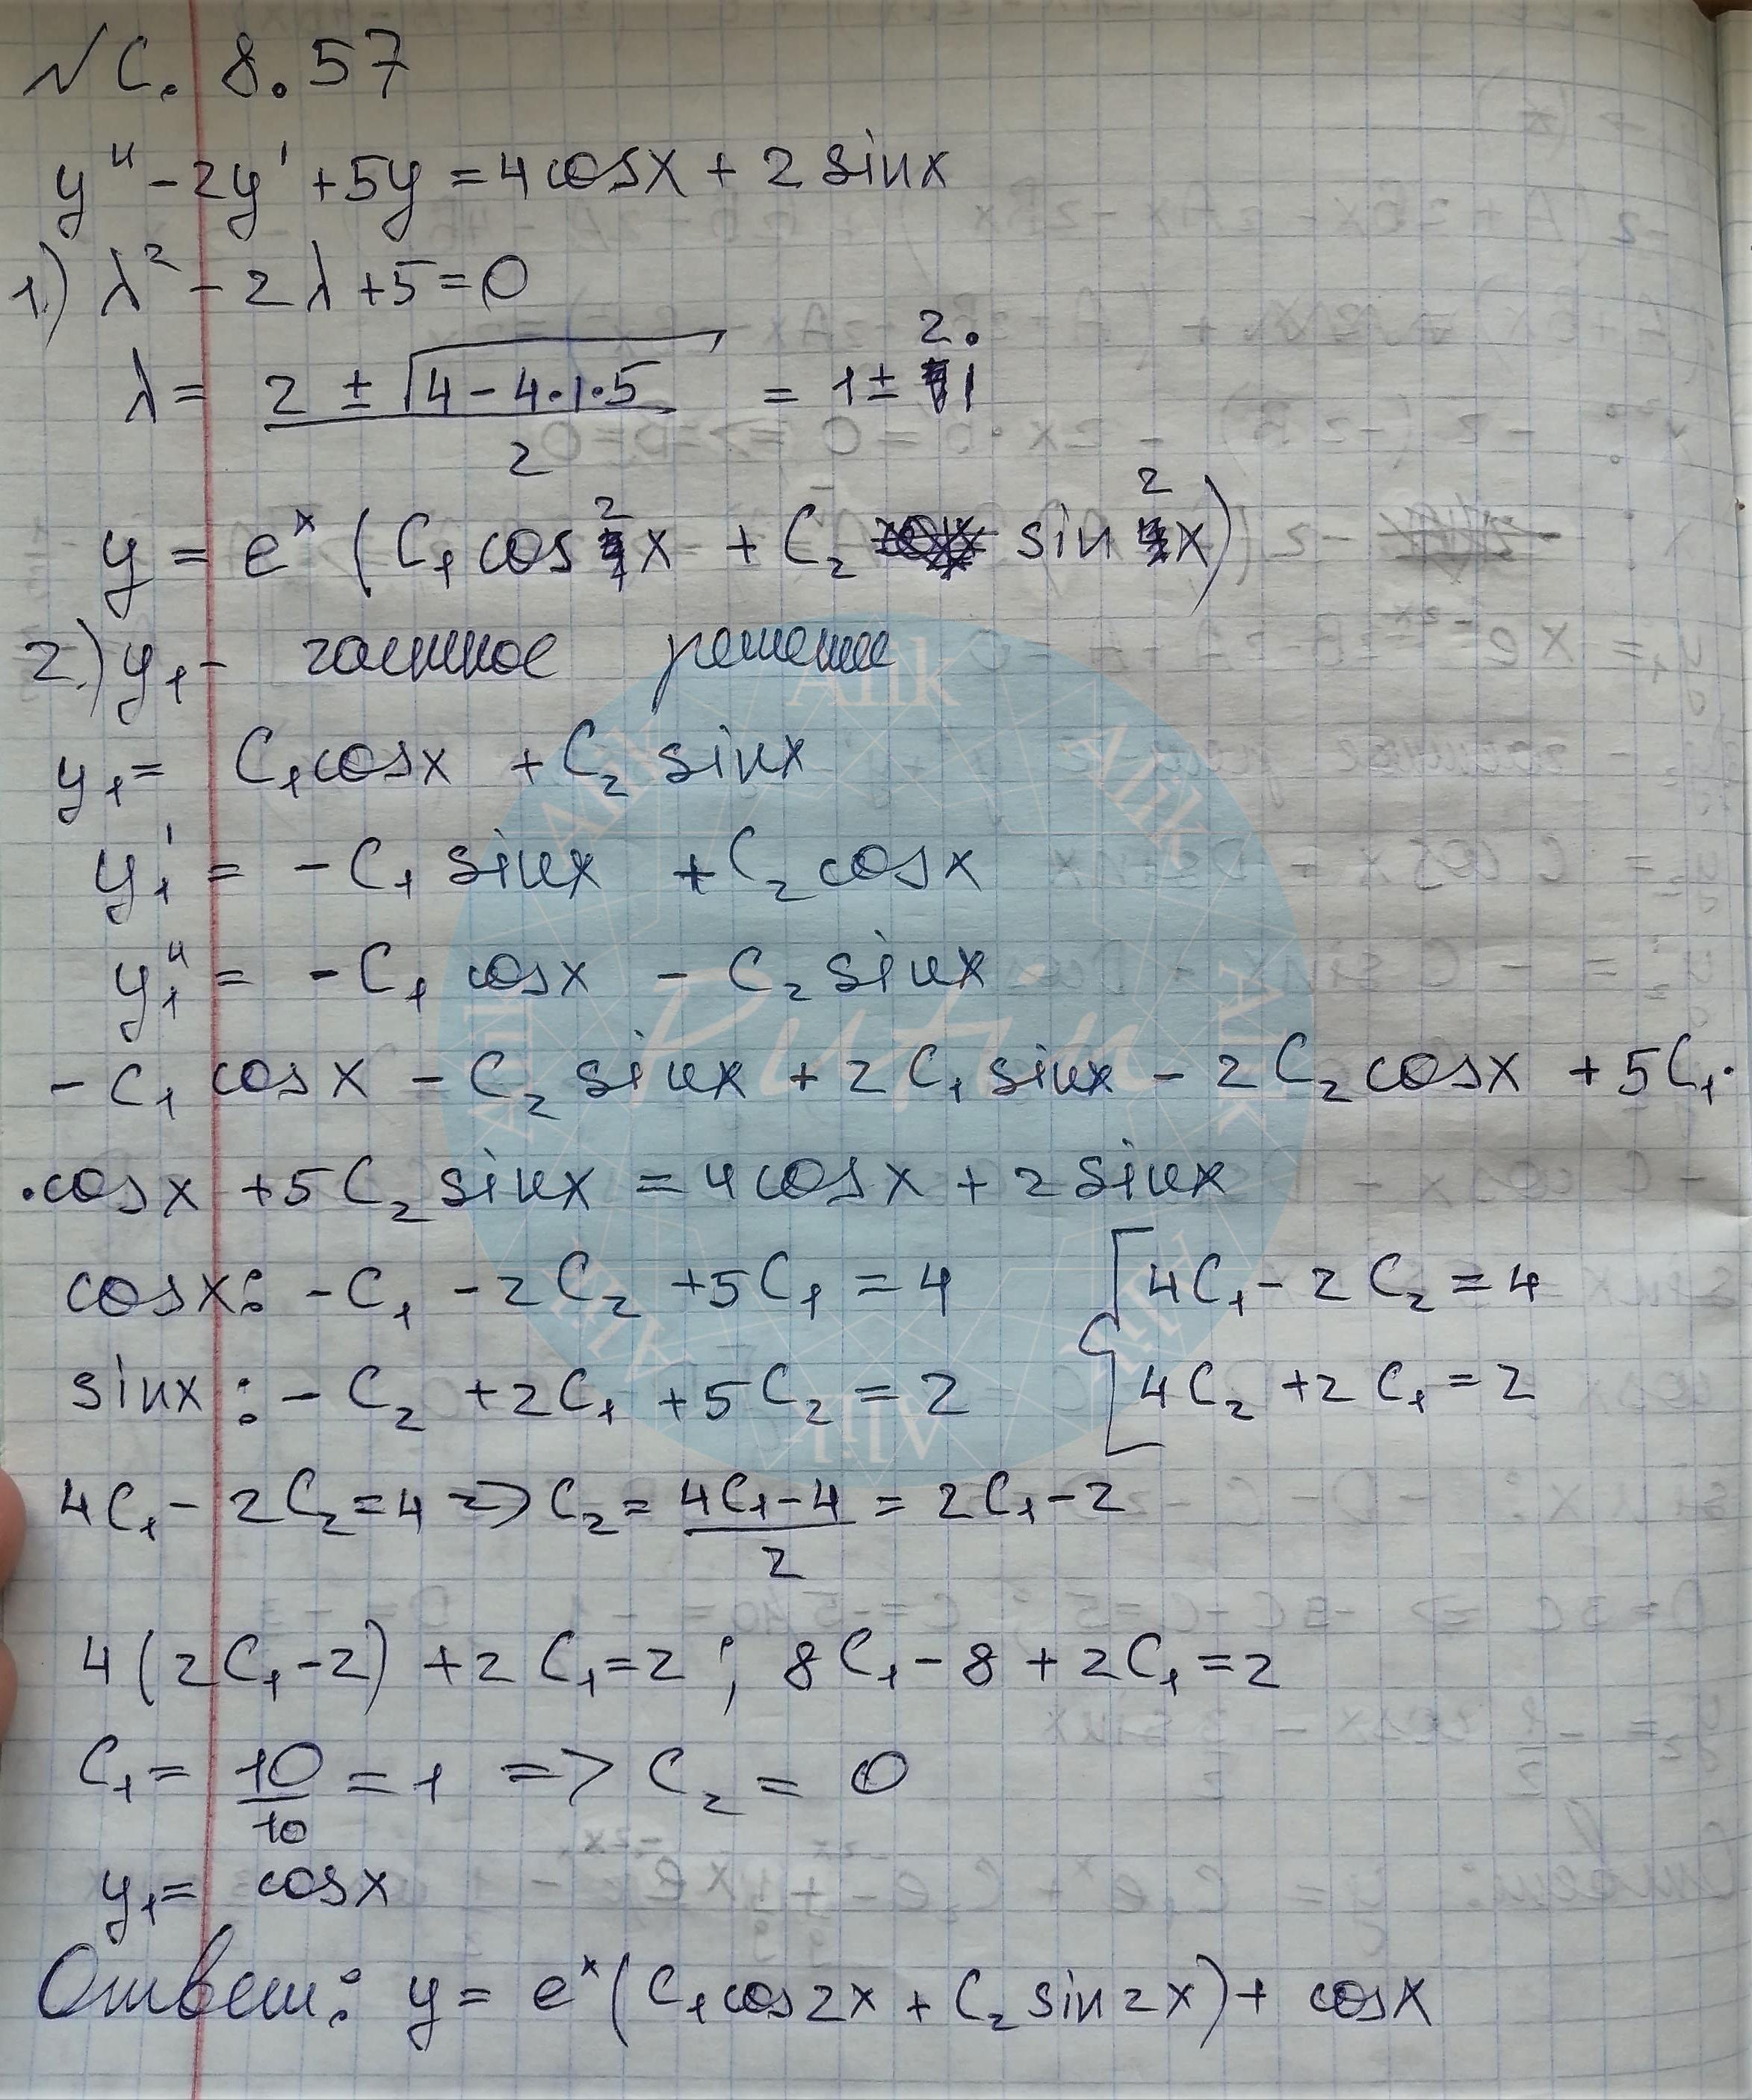 № C. 8.57
y'' - 2y' + 5y = 4cosx + 2 sinx
1.) λ² - 2λ + 5 = 0
λ = (2 ± √(4 - 4·1·5))/2 = 1 ± 2i
y = eˣ (C₁ cos 2x + C₂ sin 2x)
2.) y₁ - частное решение
y₁ = C₁cosx + C₂ sinx
y₁' = -C₁ sinx + C₂ cosx
y₁'' = -C₁ cosx - C₂ sinx
-C₁ cosx - C₂ sinx + 2C₁ sinx - 2C₂ cosx + 5C₁·
·cosx + 5C₂ sinx = 4cosx + 2 sinx
cosx: -C₁ - 2C₂ + 5C₁ = 4 { 4C₁ - 2C₂ = 4
sinx: -C₂ + 2C₁ + 5C₂ = 2 4C₂ + 2C₁ = 2
4C₁ - 2C₂ = 4 => C₂ = (4C₁ - 4)/2 = 2C₁ - 2
4(2C₁ - 2) + 2C₁ = 2 ; 8C₁ - 8 + 2C₁ = 2
C₁ = 10/10 = 1 => C₂ = 0
y₁ = cosx
Ответ: y = eˣ(C₁cos2x + C₂ sin2x) + cosx